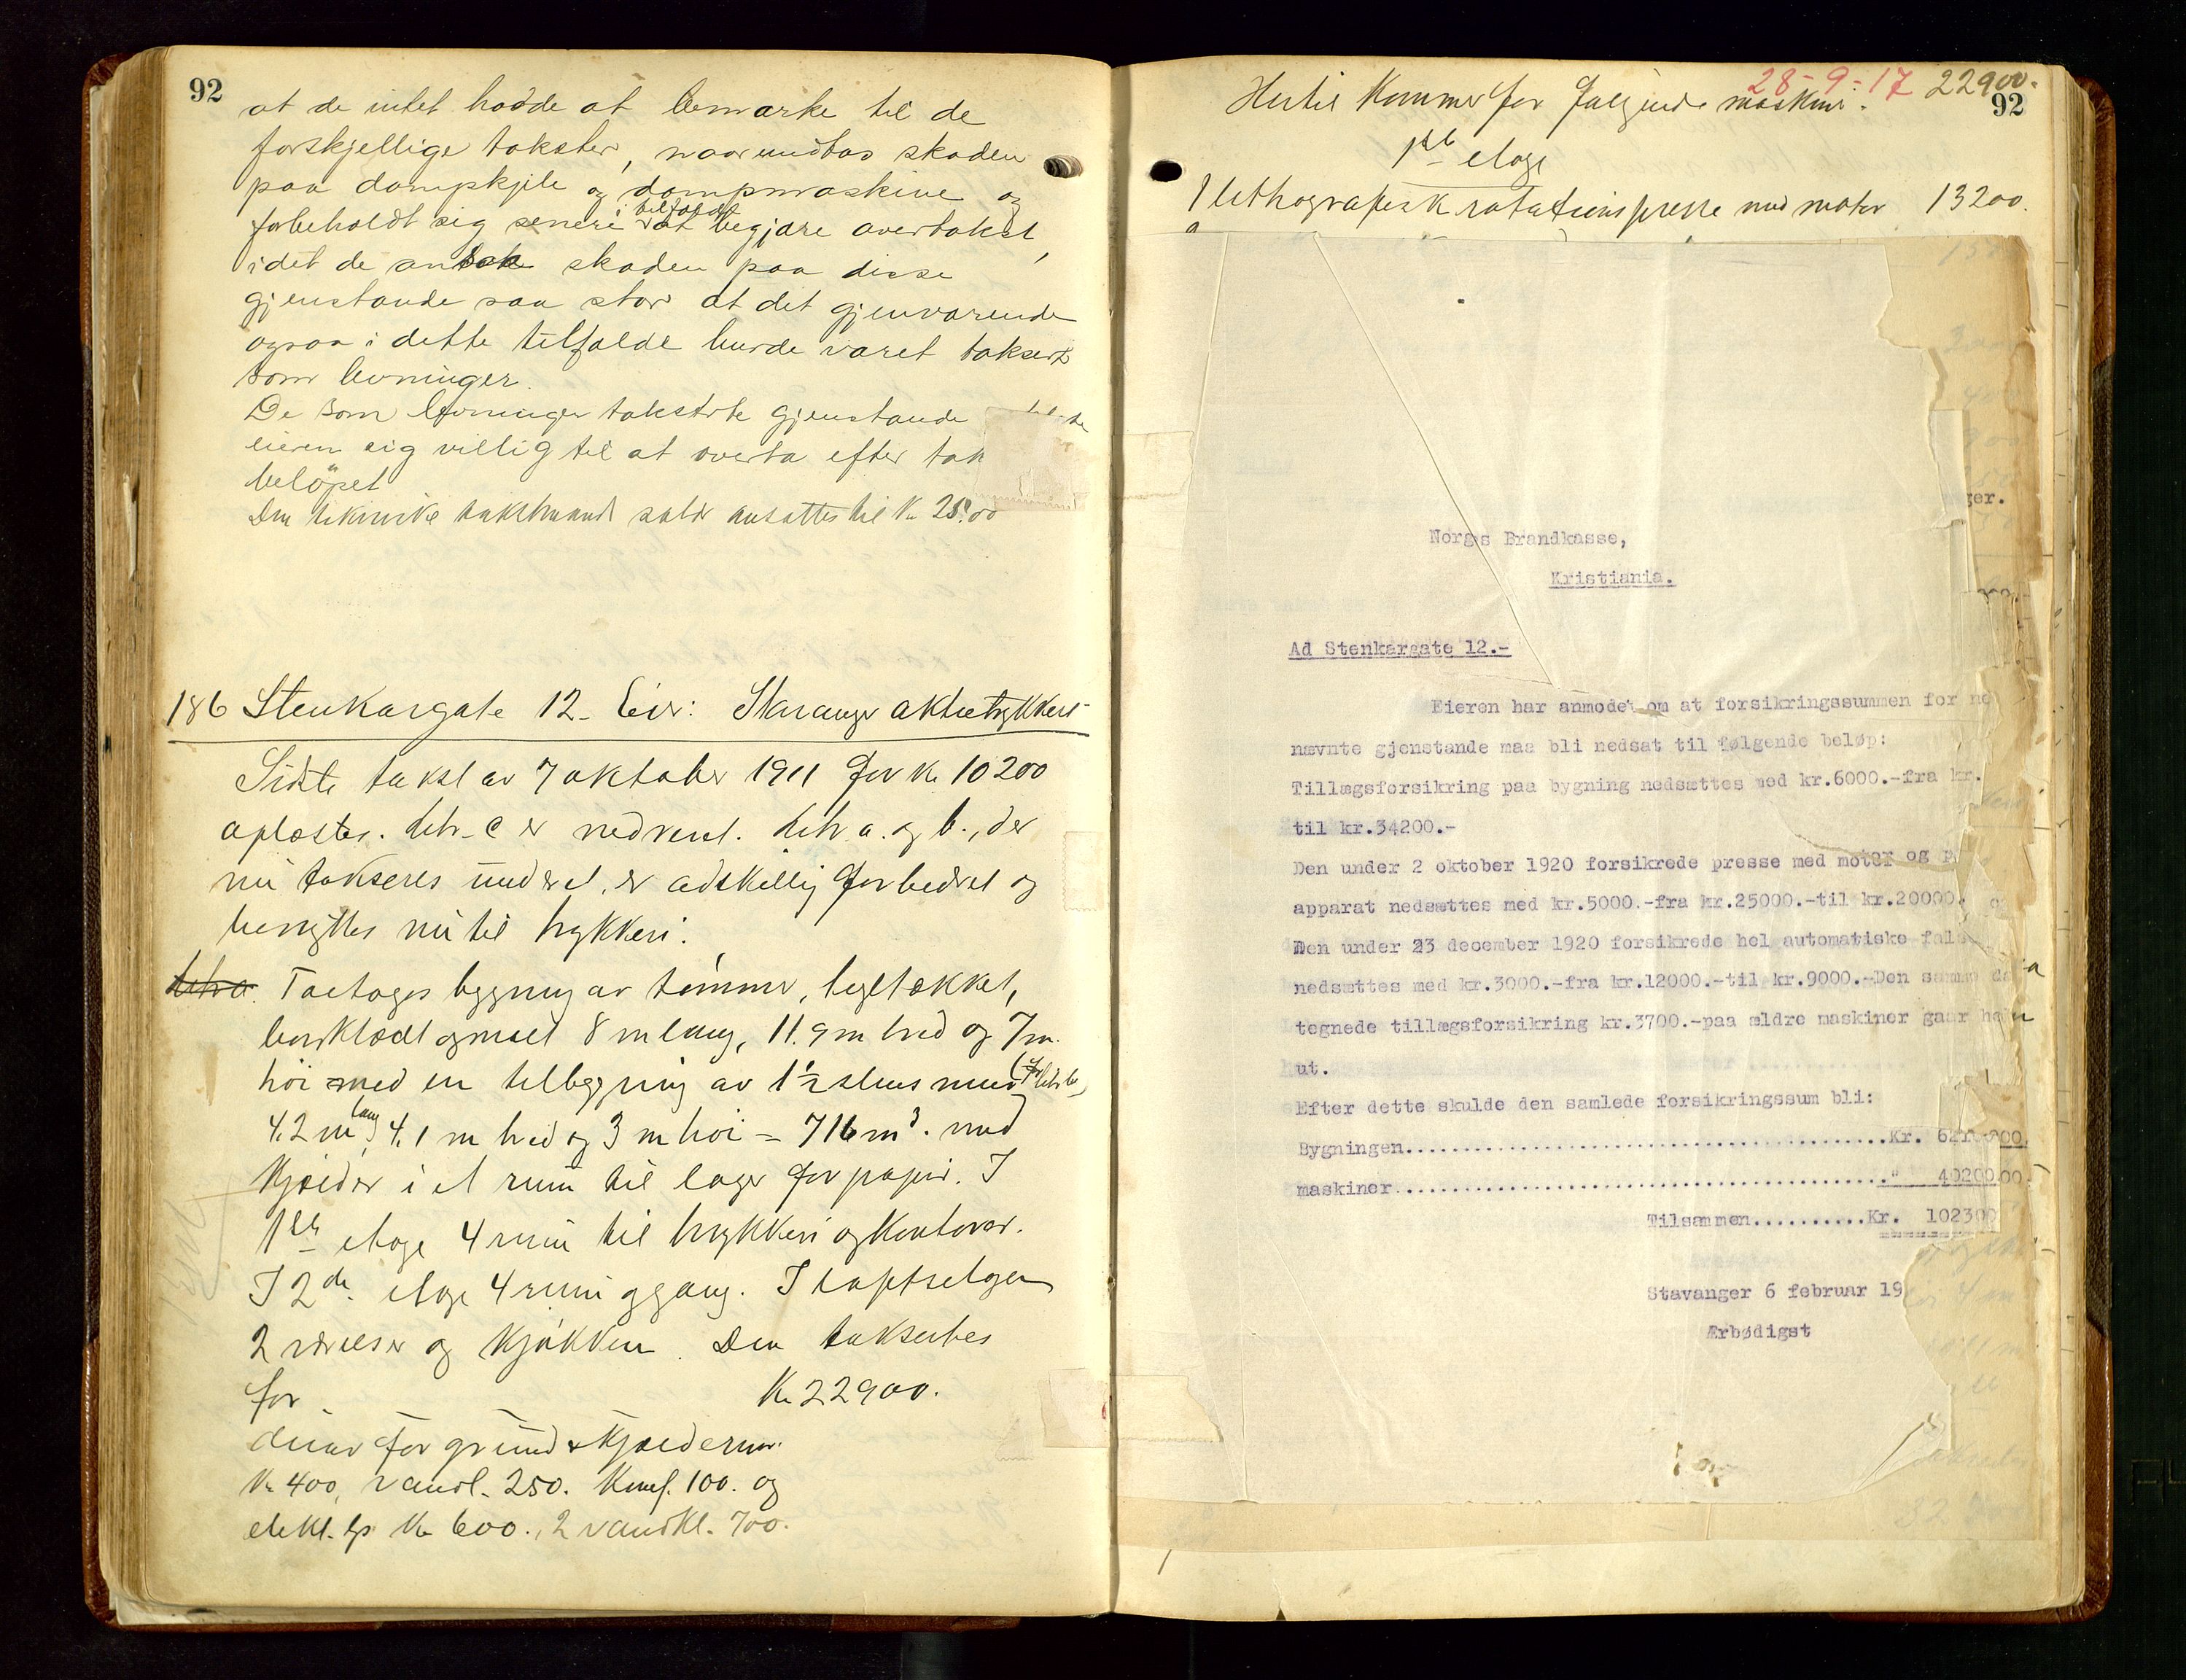 92
at de intet hadde at bemærke til de
forskjellige takster, naar undtas skaden
paa dampkjele og dampmaskine og
forbeholdt sig senere i tilfælde at begjære overtakst,
idet de antok skaden paa disse
gjenstande saa stor at det gjenværende
ogsaa i dette tilfælde burde været taksert
som levninger.
De som levninger takserte gjenstande
eieren sig villig til at overta efter tak
beløpet
Den tekniske takstmands salær ansattes til Kr 25.00
186 Stenkargate 12. Eier: Stavanger aktietrykkeri
Sidste takst av 7 oktober 1911 for Kr 10200
opløstes. Litr. c er nedrevet. Litr a. og b., der
nu takseres under et, er adskillig forbedret og
benyttes nu til trykkeri.
Litr a. Toetages bygning av tømmer, tegltækket,
bordklædt og malt 8 m lang, 11.9 m bred og 7 m.
høi med en tilbygning av 1½ stens mur (før litr b.)
4.2 m lang, 4.1 m bred og 3 m høi = 716 m³. med
Kjælder i et rum til lager for papir. I
1ste etage 4 rum til trykkeri og Kontorer.
I 2de etage 4 rum og gang. I loftsetagen
2 værelser og Kjøkken. Den taksertes
for Kr 22900.
derav for grund & Kjældermur
Kr 400, vandl. 250. Komf. 100. og
elekt. lys Kr 600., 2 vandkl. 700.
28-9-17 22900.
92
Hertil Kommer for følgende maskiner:
1ste etage
1 lithografisk rotationspresse med motor 13200.
ger.
Norges Brandkasse,
Kristiania.
Ad Stenkargate 12.-
Eieren har anmodet om at forsikringssummen for ne
nævnte gjenstande maa bli nedsat til følgende beløp:
Tillægsforsikring paa bygning nedsættes med kr.6000.-fra kr.
til kr.34200.-
Den under 2 oktober 1920 forsikrede presse med motor og p
apparat nedsættes med kr.5000.-fra kr.25000.-til kr.20000.
Den under 23 december 1920 forsikrede hel automatiske fals
nedsættes med kr.3000.-fra kr.12000.-til kr.9000.-Den samme da
tegnede tillægsforsikring kr.3700.-paa ældre maskiner gaar he
ut.
Efter dette skulde den samlede forsikringssum bli:
Bygningen..........Kr. 62100.00
maskiner.........." 40200.00
Tilsammen..........Kr. 102300
Stavanger 6 februar 19
Ærbødigst